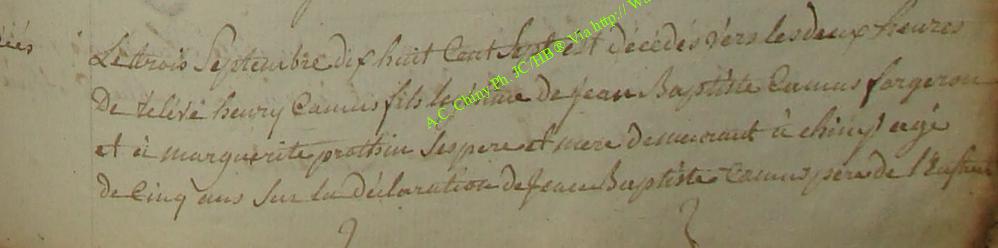 ées
Le trois Septembre dix huit Cent Sept est décédés vers les deux heures
De relévé henry Camus fils légitime de Jean Baptiste Camus forgeron
et à marguerite prothin Ses pere et mere demeurant à chiny agé
de Cinq ans Sur la déclaration de Jean Baptiste Camus père de l'Enfant
A.C. Chiny Ph. JC/HB ® Via http://